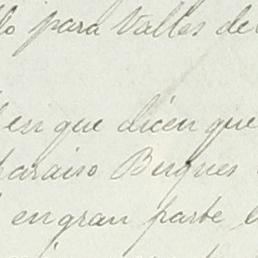 para Valles de
en que dicen que
paraiso Buques
en gran parte